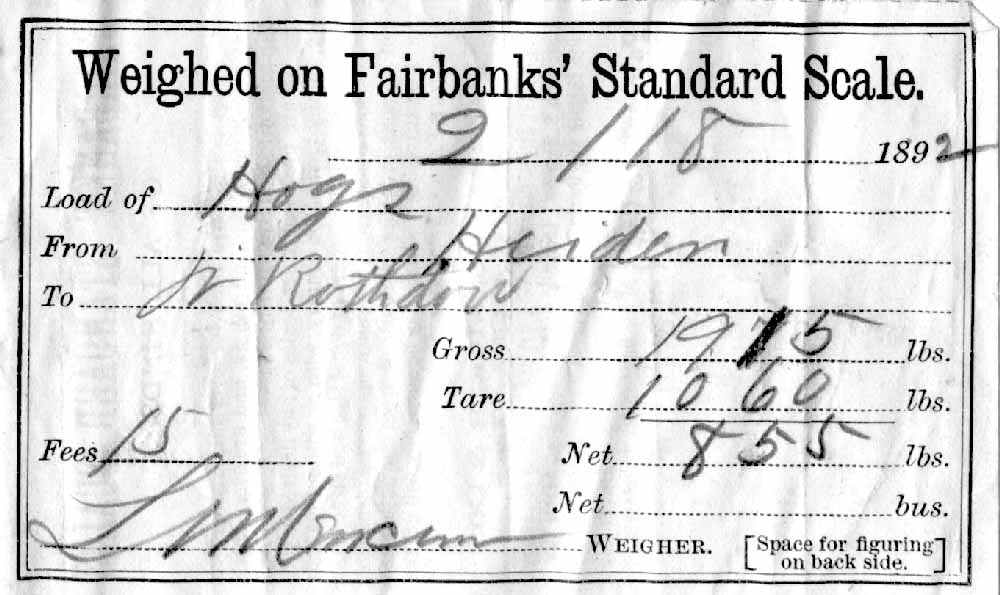 Weighed on Fairbanks' Standard Scale.
2/18 1892
Load of Hogs
From Heiden
To W Rothdow
Gross 1915 lbs.
Tare 1060 lbs.
Fees 15 Net 855 lbs.
Net bus.
WEIGHER. [Space for figuring
on back side.]